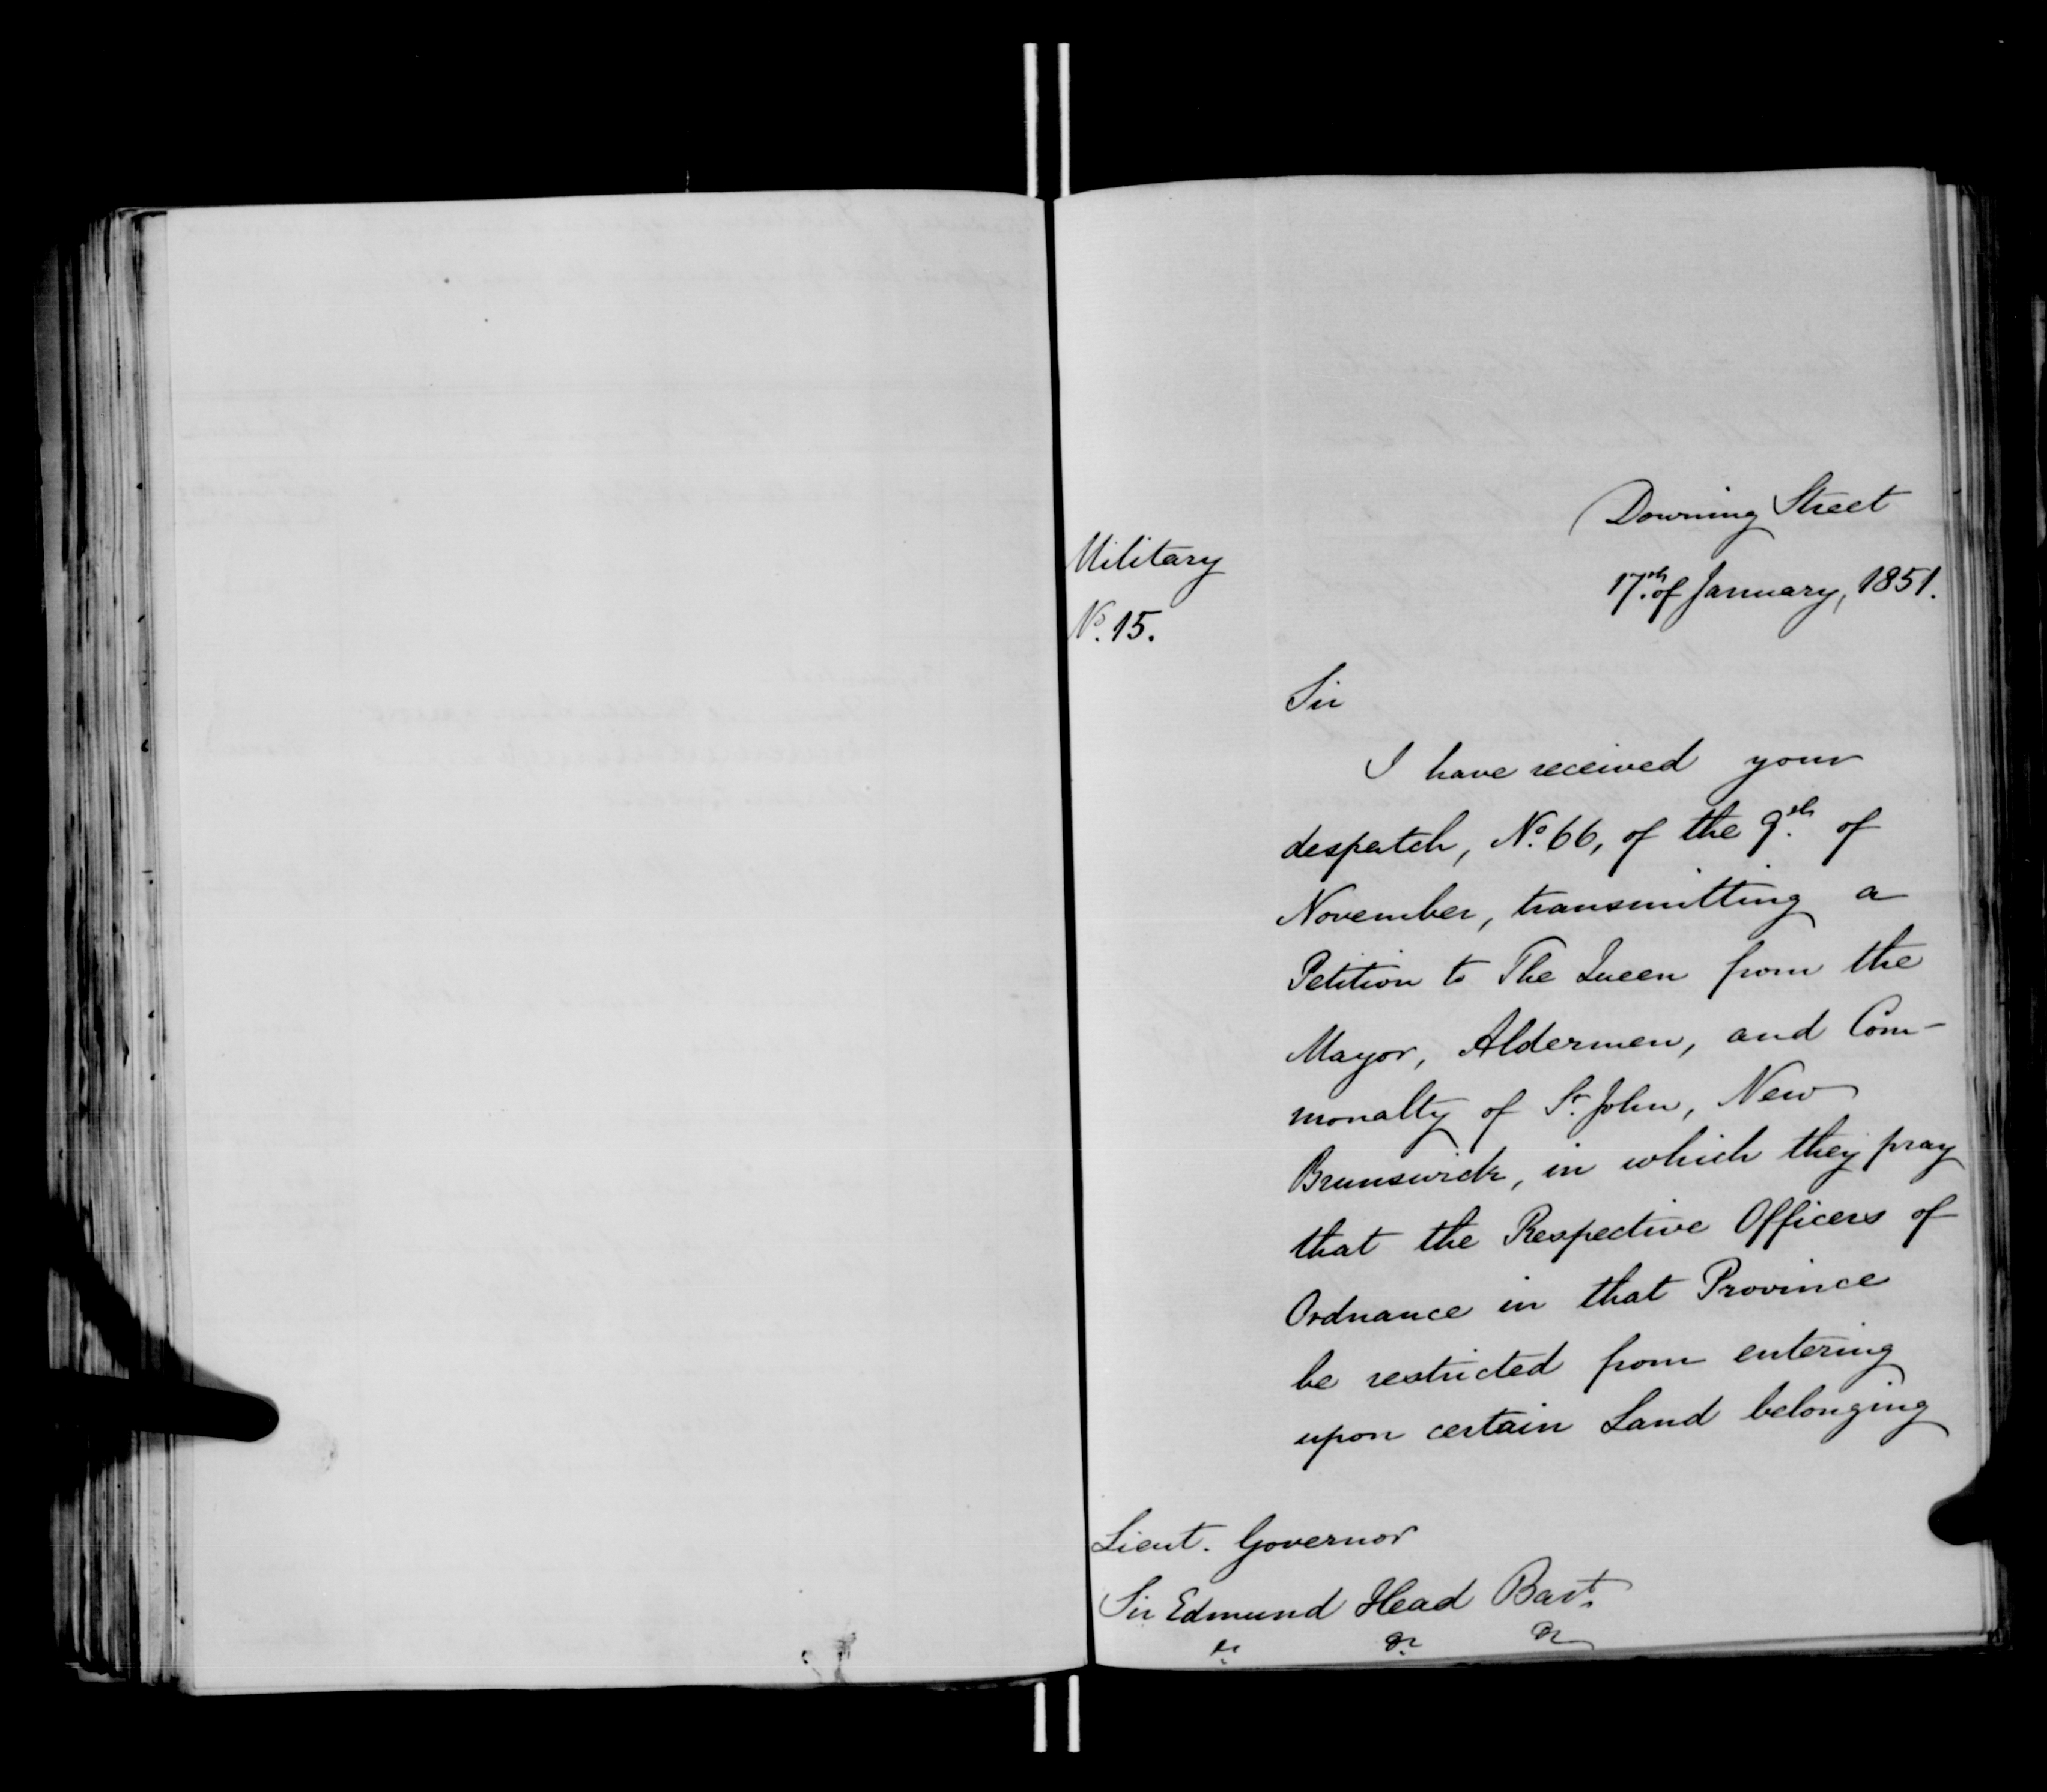 Downing Street
Military
17th. of January, 1851.
No. 15.
Sir
I have received your
despatch, No. 66, of the 9th. of
November, transmitting a
Petition to The Queen from the
Mayor, Aldermen, and Com-
monalty of St. John, New
Brunswick, in which they pray
that the Respective Officers of
Ordnance in that Province
be restricted from entering
upon certain Land belonging
Lieut. Governor
Sir Edmund Head Bart.
&c &c &c